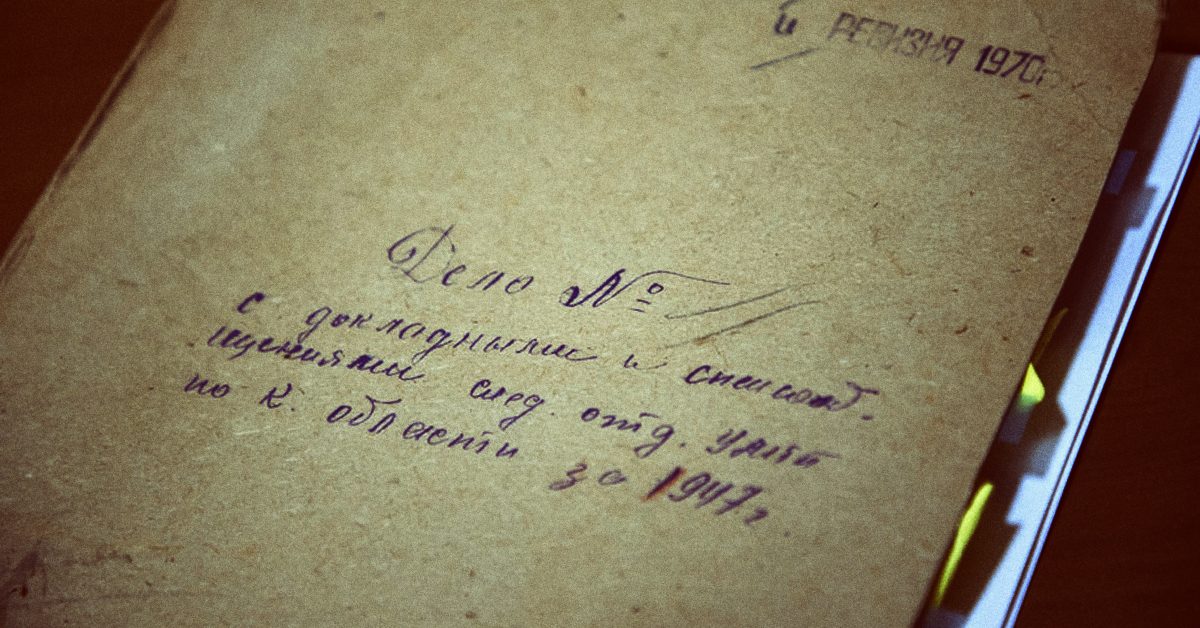 и РЕВИЗИЯ 1970г.
Дело №
с докладными и спецсооб-
щениями след. отд. УМГБ
по К. области за 1947г.